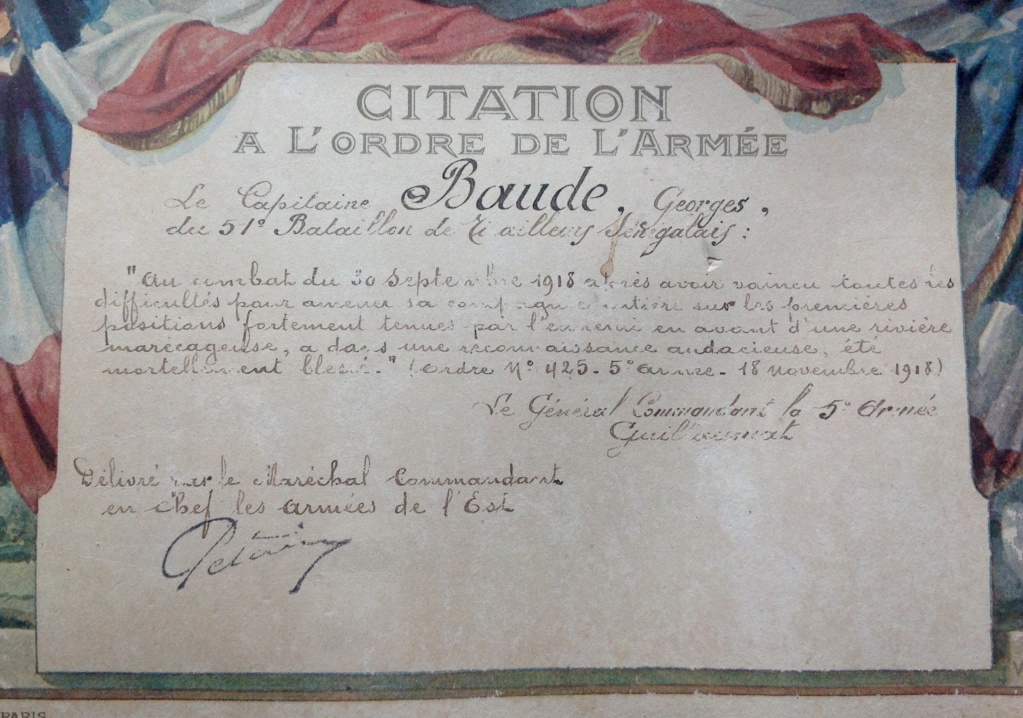 CITATION
A L'ORDRE DE L'ARMÉE
Le Capitaine Baude, Georges,
du 51º Bataillon de Tirailleurs Sénégalais :
"Au combat du 30 Septembre 1918 après avoir vaincu toutes les
difficultés pour amener sa compagnie entière sur les premières
positions fortement tenues par l'ennemi en avant d'une rivière
marécageuse, a dans une reconnaissance audacieuse, été
mortellement blessé." (Ordre Nº 425 - 5º Armée - 18 novembre 1918)
Le Général Commandant la 5º Armée
Guillaumat
Délivré par le Maréchal Commandant
en Chef les armées de l'Est
Petain
PARIS